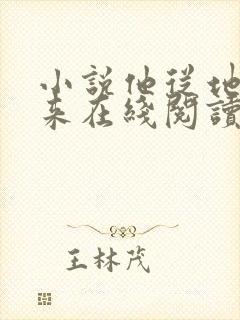 小說他從地
來在綫閱讀
王林茂